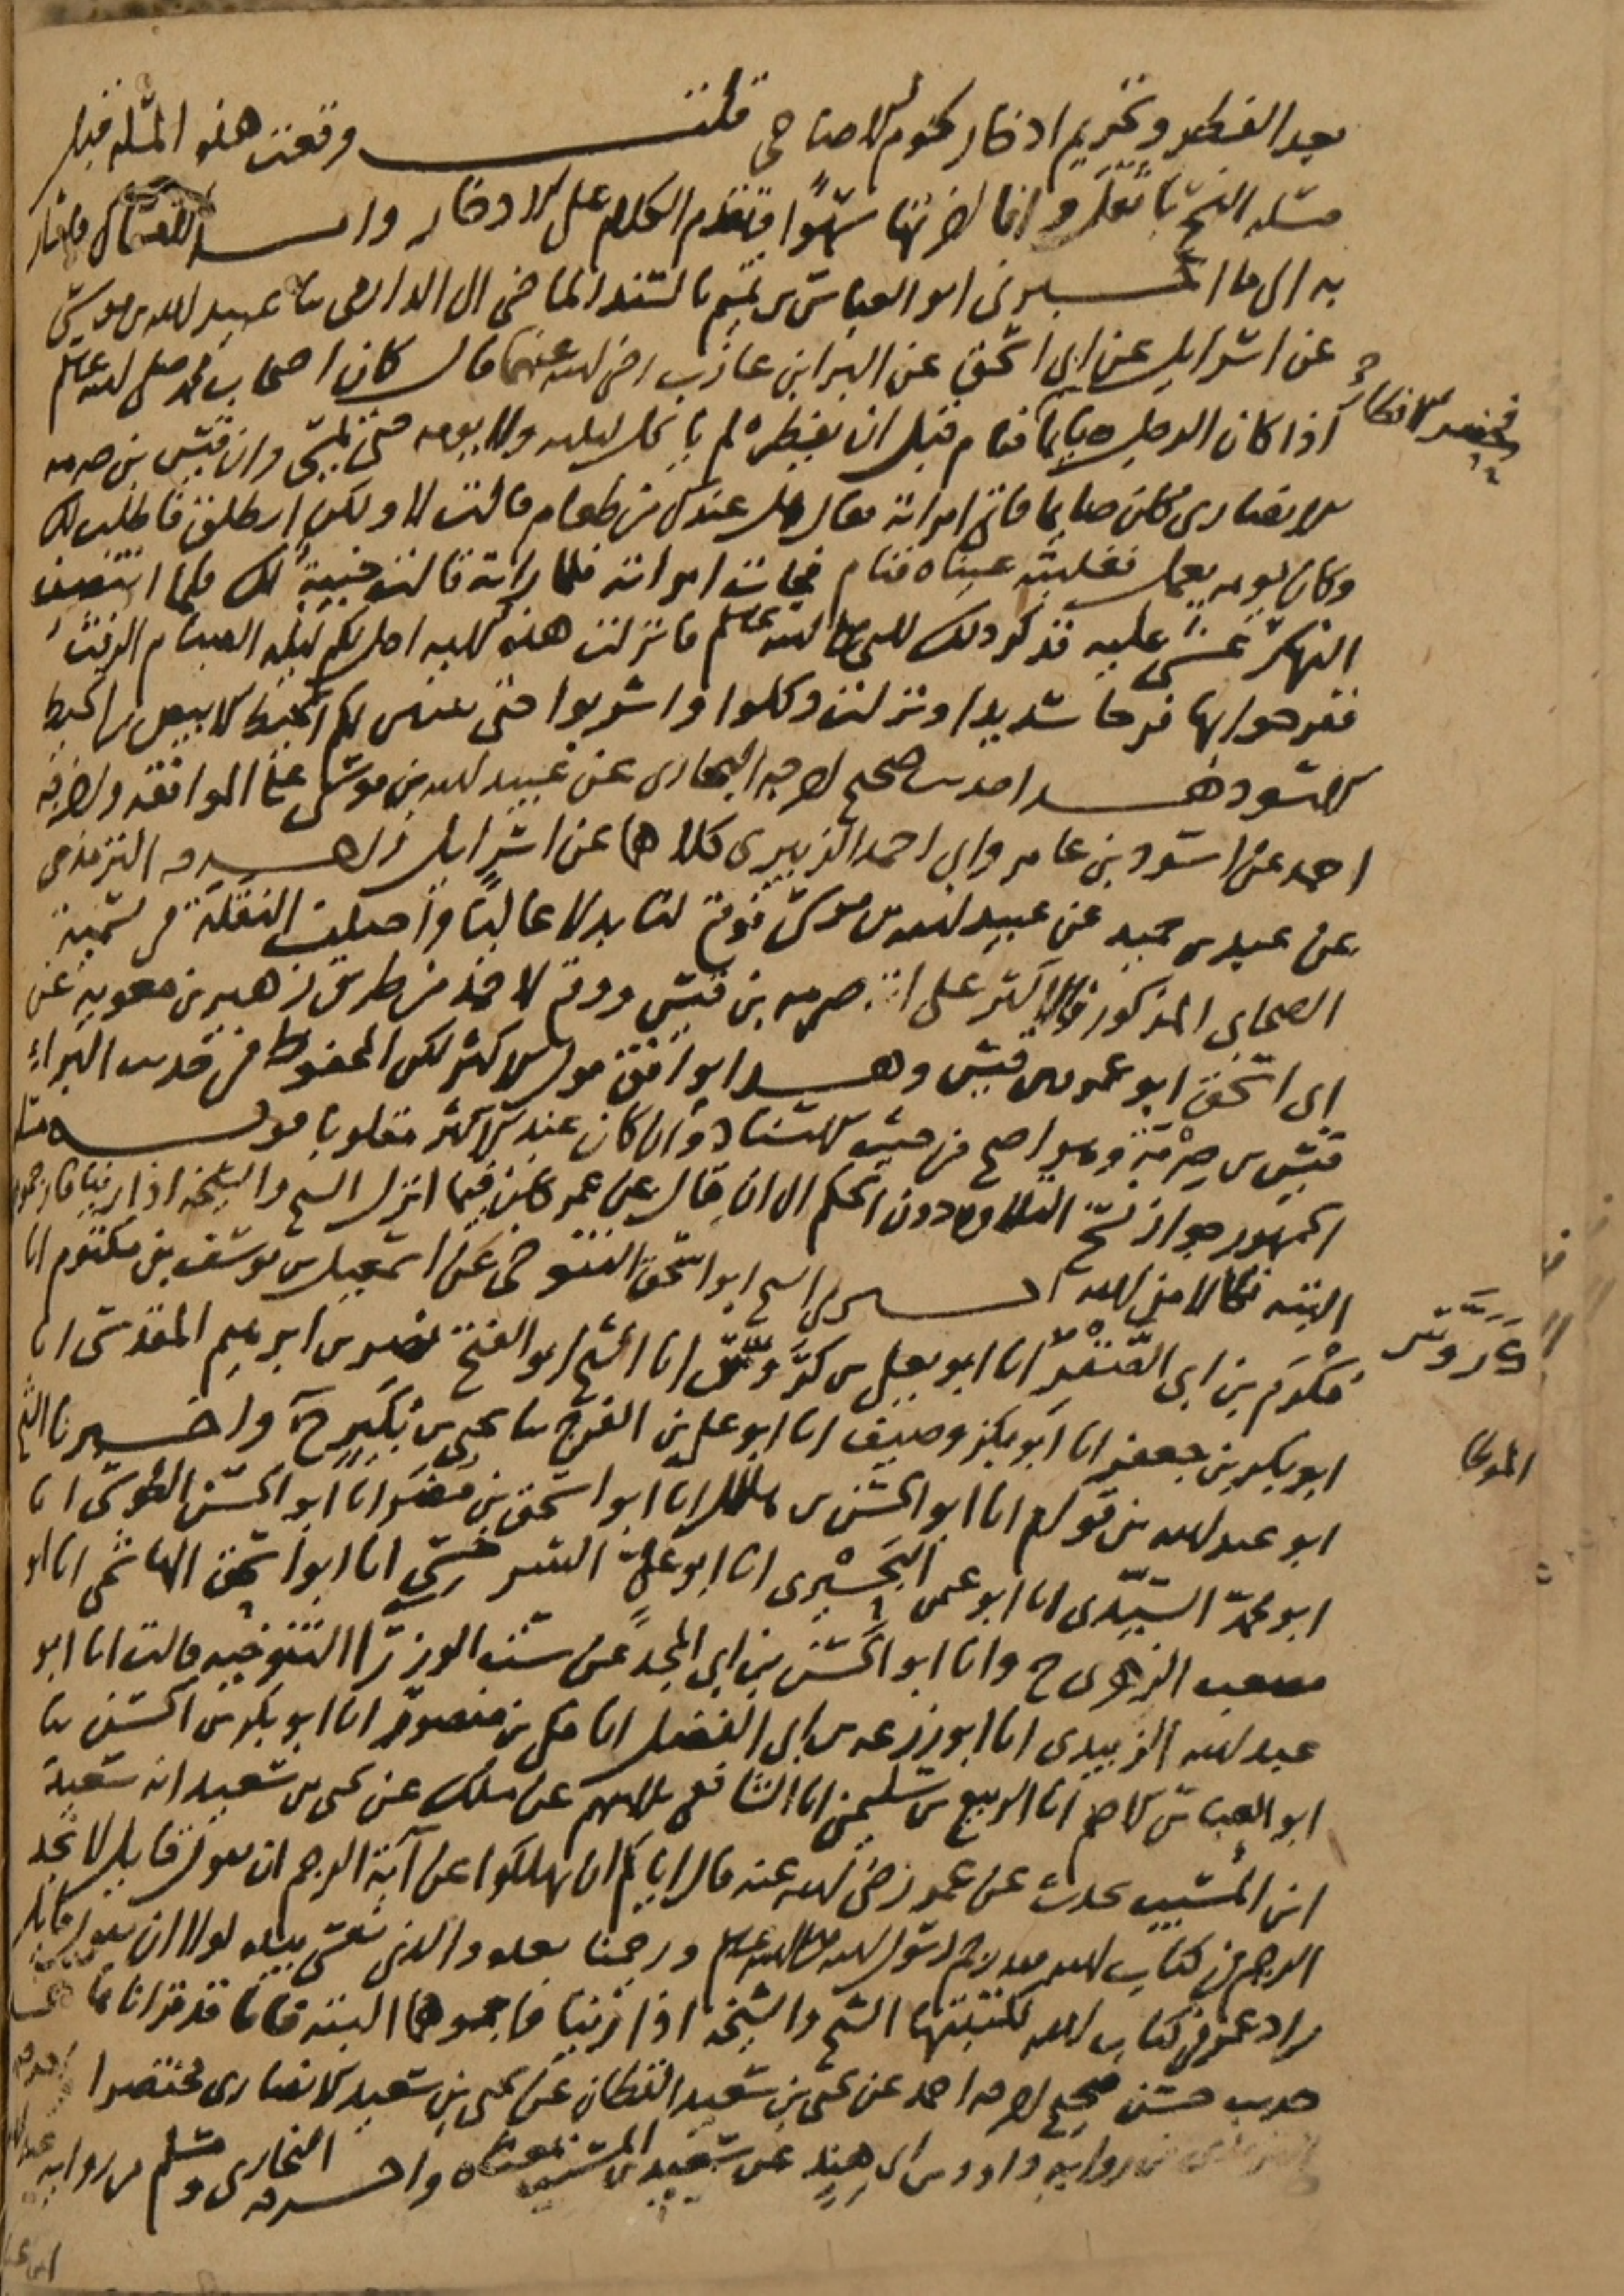 بعد الفطر وتحريم ادخار لحوم الاضاحي قلت وقعت هذه المسله قبل
مسله النسخ وانما اخرتها سهوا فتقدم الكلام على الادخار واما
به الى ما اخبرني ابو العباس بن تميم بالسند الماضي الى الدارمي ثنا عبيد الله بن موسى
عن اسرايل عن ابي اسحق عن البرا بن عازب رضي الله عنهما قال كان اصحاب محمد صلى الله عليه وسلم
اذا كان الرجل صايما فنام قبل ان يفطر لم ياكل ليلته ولا يومه حتى يمسي وان قيس بن صرمه
فحضر الافطار
الانصاري كان صايما فاتى امراته فقال هل عندك من طعام قالت لا ولكن انطلق فاطلب لك
وكان يومه يعمل فغلبته عيناه فنام فجات امراته فلما راته قالت خيبة لك فلما انتصف
النهار غشي عليه فذكر ذلك للنبي صلى الله عليه وسلم فانزلت هذه الايه احل لكم ليله الصيام الرفث
ففرحوا بها فرحا شديدا ونزلت وكلوا واشربوا حتى يتبين لكم الخيط الابيض من الخيط
الاسود هذا حديث صحيح اخرجه البخاري عن عبيد الله بن موسى على الموافقه واخرجه
احمد عن اسود بن عامر وابي احمد الزبيري كلاهما عن اسرايل واخرجه الترمذي
عن عبد بن حميد عن عبيد الله بن موسى فوقع لنا بدلا عاليا واختلفت النقلة في تسمية
الصحابي المذكور فالاكثر على انه صرمه بن قيس ووقع لاحمد من طريق زهير بن معويه عن
ابي اسحق ابو عمرو بن قيس وهذا يوافق قول الاكثر لكن المحفوظ في حديث البراء
قيس بن صرمة وهو اصح من حيث الاسناد وان كان عند الاكثر مقلوبا قوله مسله
الجمهور جواز نسخ التلاوه دون الحكم الى ان قال عن عمر كان فيما انزل الشيخ والشيخه اذا زنيا فارجموهما
البته نكالا من الله اخبرني الشيخ ابو اسحق التنوخي عن اسمعيل بن يوسف بن مكتوم انا
مكرم بن ابي الصقر انا ابو يعلى بن كروس انا الشيخ ابو الفتح نصر بن ابرهيم المقدسي انا
كروس
ابو بكر بن جعفر انا ابو بكر وصيف انا ابو علي بن الفرج ثنا يحيى بن بكير ح واخبرنا الشيخ
ابو عبد الله بن قوام انا ابو الحسن بن هلال انا ابو اسحق بن مضر انا ابو الحسن الطوسي انا
الموطا
ابو محمد السيدي انا ابو عثمن البحيري انا ابو علي السرخسي انا ابو اسحق الهاشمي انا ابو
مصعب الزهري ح وانا ابو الحسن بن ابي المجد عن ست الوزرا التنوخيه قالت انا ابو
عبد الله الزبيدي انا ابو زرعه بن ابي الفضل انا مكي بن منصور انا ابو بكر بن الحسن ثنا
ابو العباس الاصم انا الربيع بن سليمن انا الشافعي ثلاثتهم عن ملك عن يحيى بن سعيد انه سمع
ابن المسيب يحدث عن عمر رضي الله عنه قال اياكم ان تهلكوا عن آية الرجم ان يقول قايل لا نجد
الرجم في كتاب الله فقد رجم رسول الله صلى الله عليه وسلم ورجمنا بعده والذي نفسي بيده لولا ان يقول قايل
زاد عمر في كتاب الله لكتبتها الشيخ والشيخه اذا زنيا فارجموهما البته فانا قد قراناها هذا
حديث حسن صحيح اخرجه احمد عن يحيى بن سعيد القطان عن يحيى بن سعيد الانصاري مختصرا
من روايه داود بن ابي هند عن سعيد بن المسيب بمعناه واخرجه البخاري ومسلم من روايه